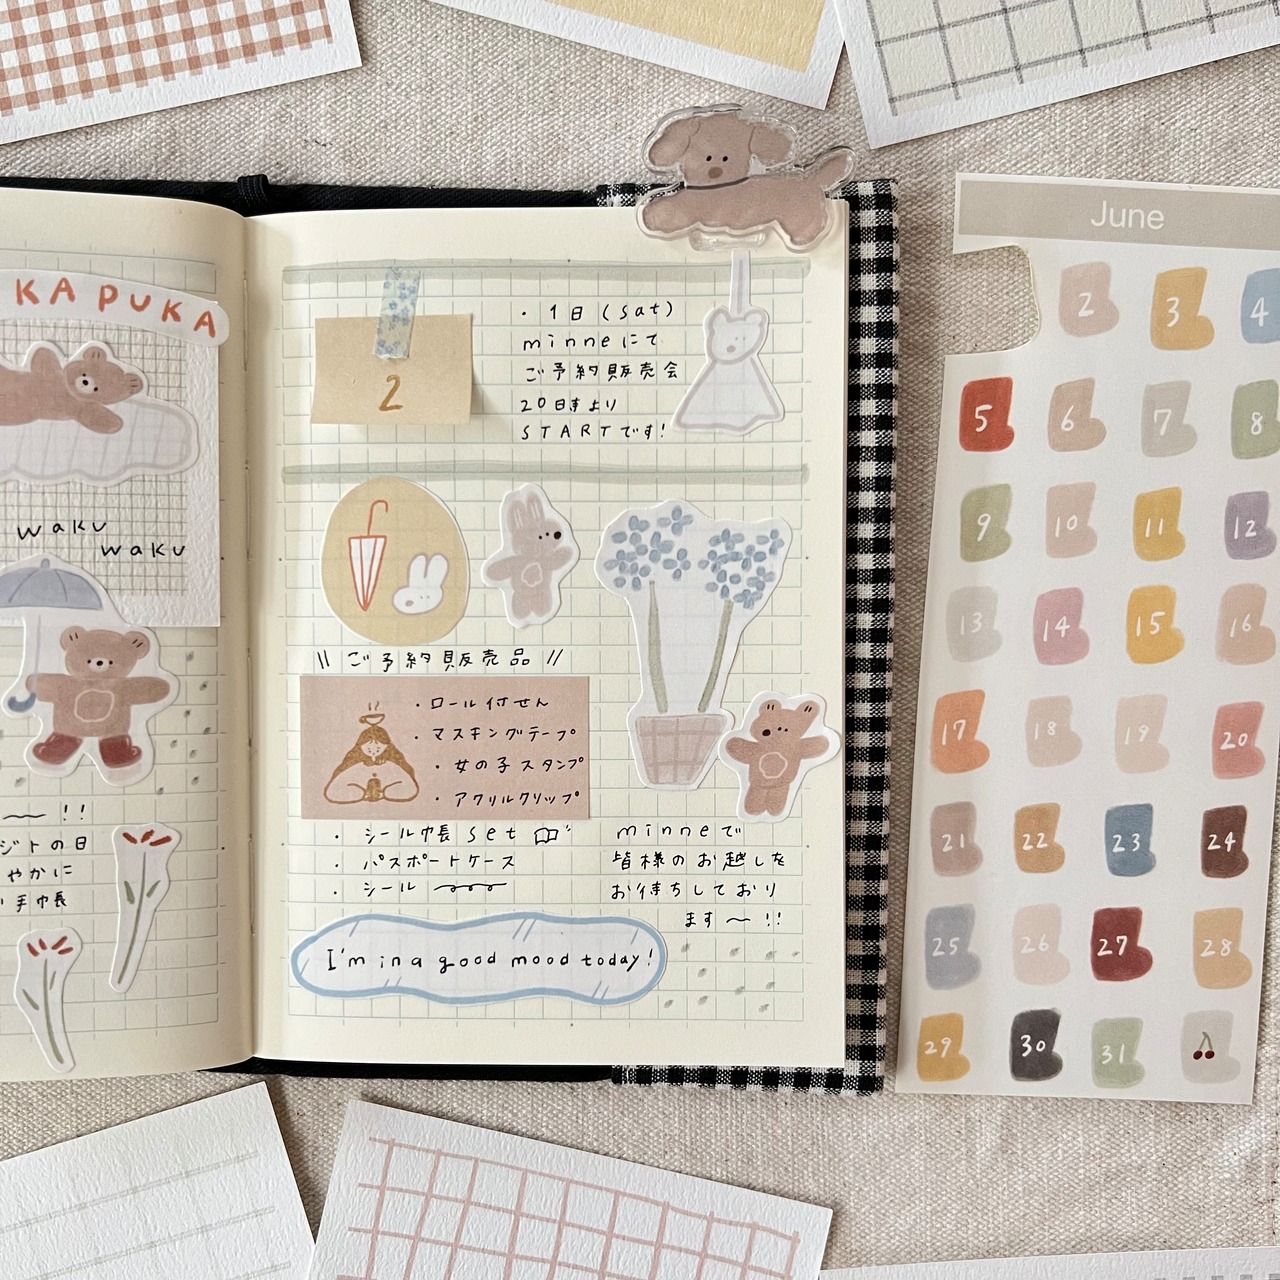 KA PUKA
waku
waku
〜 !!
ジトの日
やかに
手巾長
2
・1日(sat)
minneにて
ご予約販売会
20時より
STARTです!
\\ ご予約販売品 //
・ロール付せん
・マスキングテープ
・女の子スタンプ
・アクリルクリップ
・シール帳 set
・パスポートケース
・シール
minneで
皆様のお越しを
お待ちしており
ます〜!!
I'm in a good mood today!
June
2 3 4
5 6 7 8
9 10 11 12
13 14 15 16
17 18 19 20
21 22 23 24
25 26 27 28
29 30 31